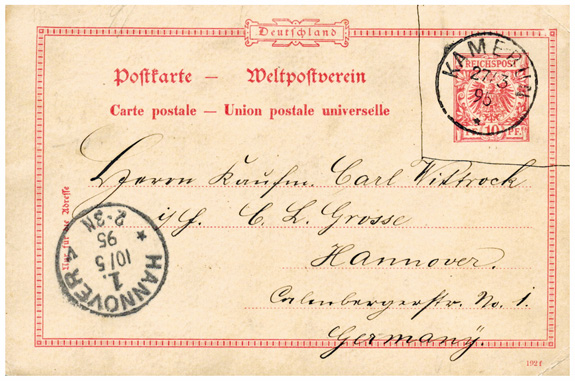 Deutschland
Postkarte — Weltpostverein
Carte postale — Union postale universelle
KAMERUN
27/3
95
*
REICHSPOST
10 PF.
Nur für die Adresse
Herrn Kaufm. Carl Wittrock
C. L. Grosse
Hannover.
Calenbergerstr. No. 1.
Germany.
HANNOVER
1.
10/5
95
2-3N
*